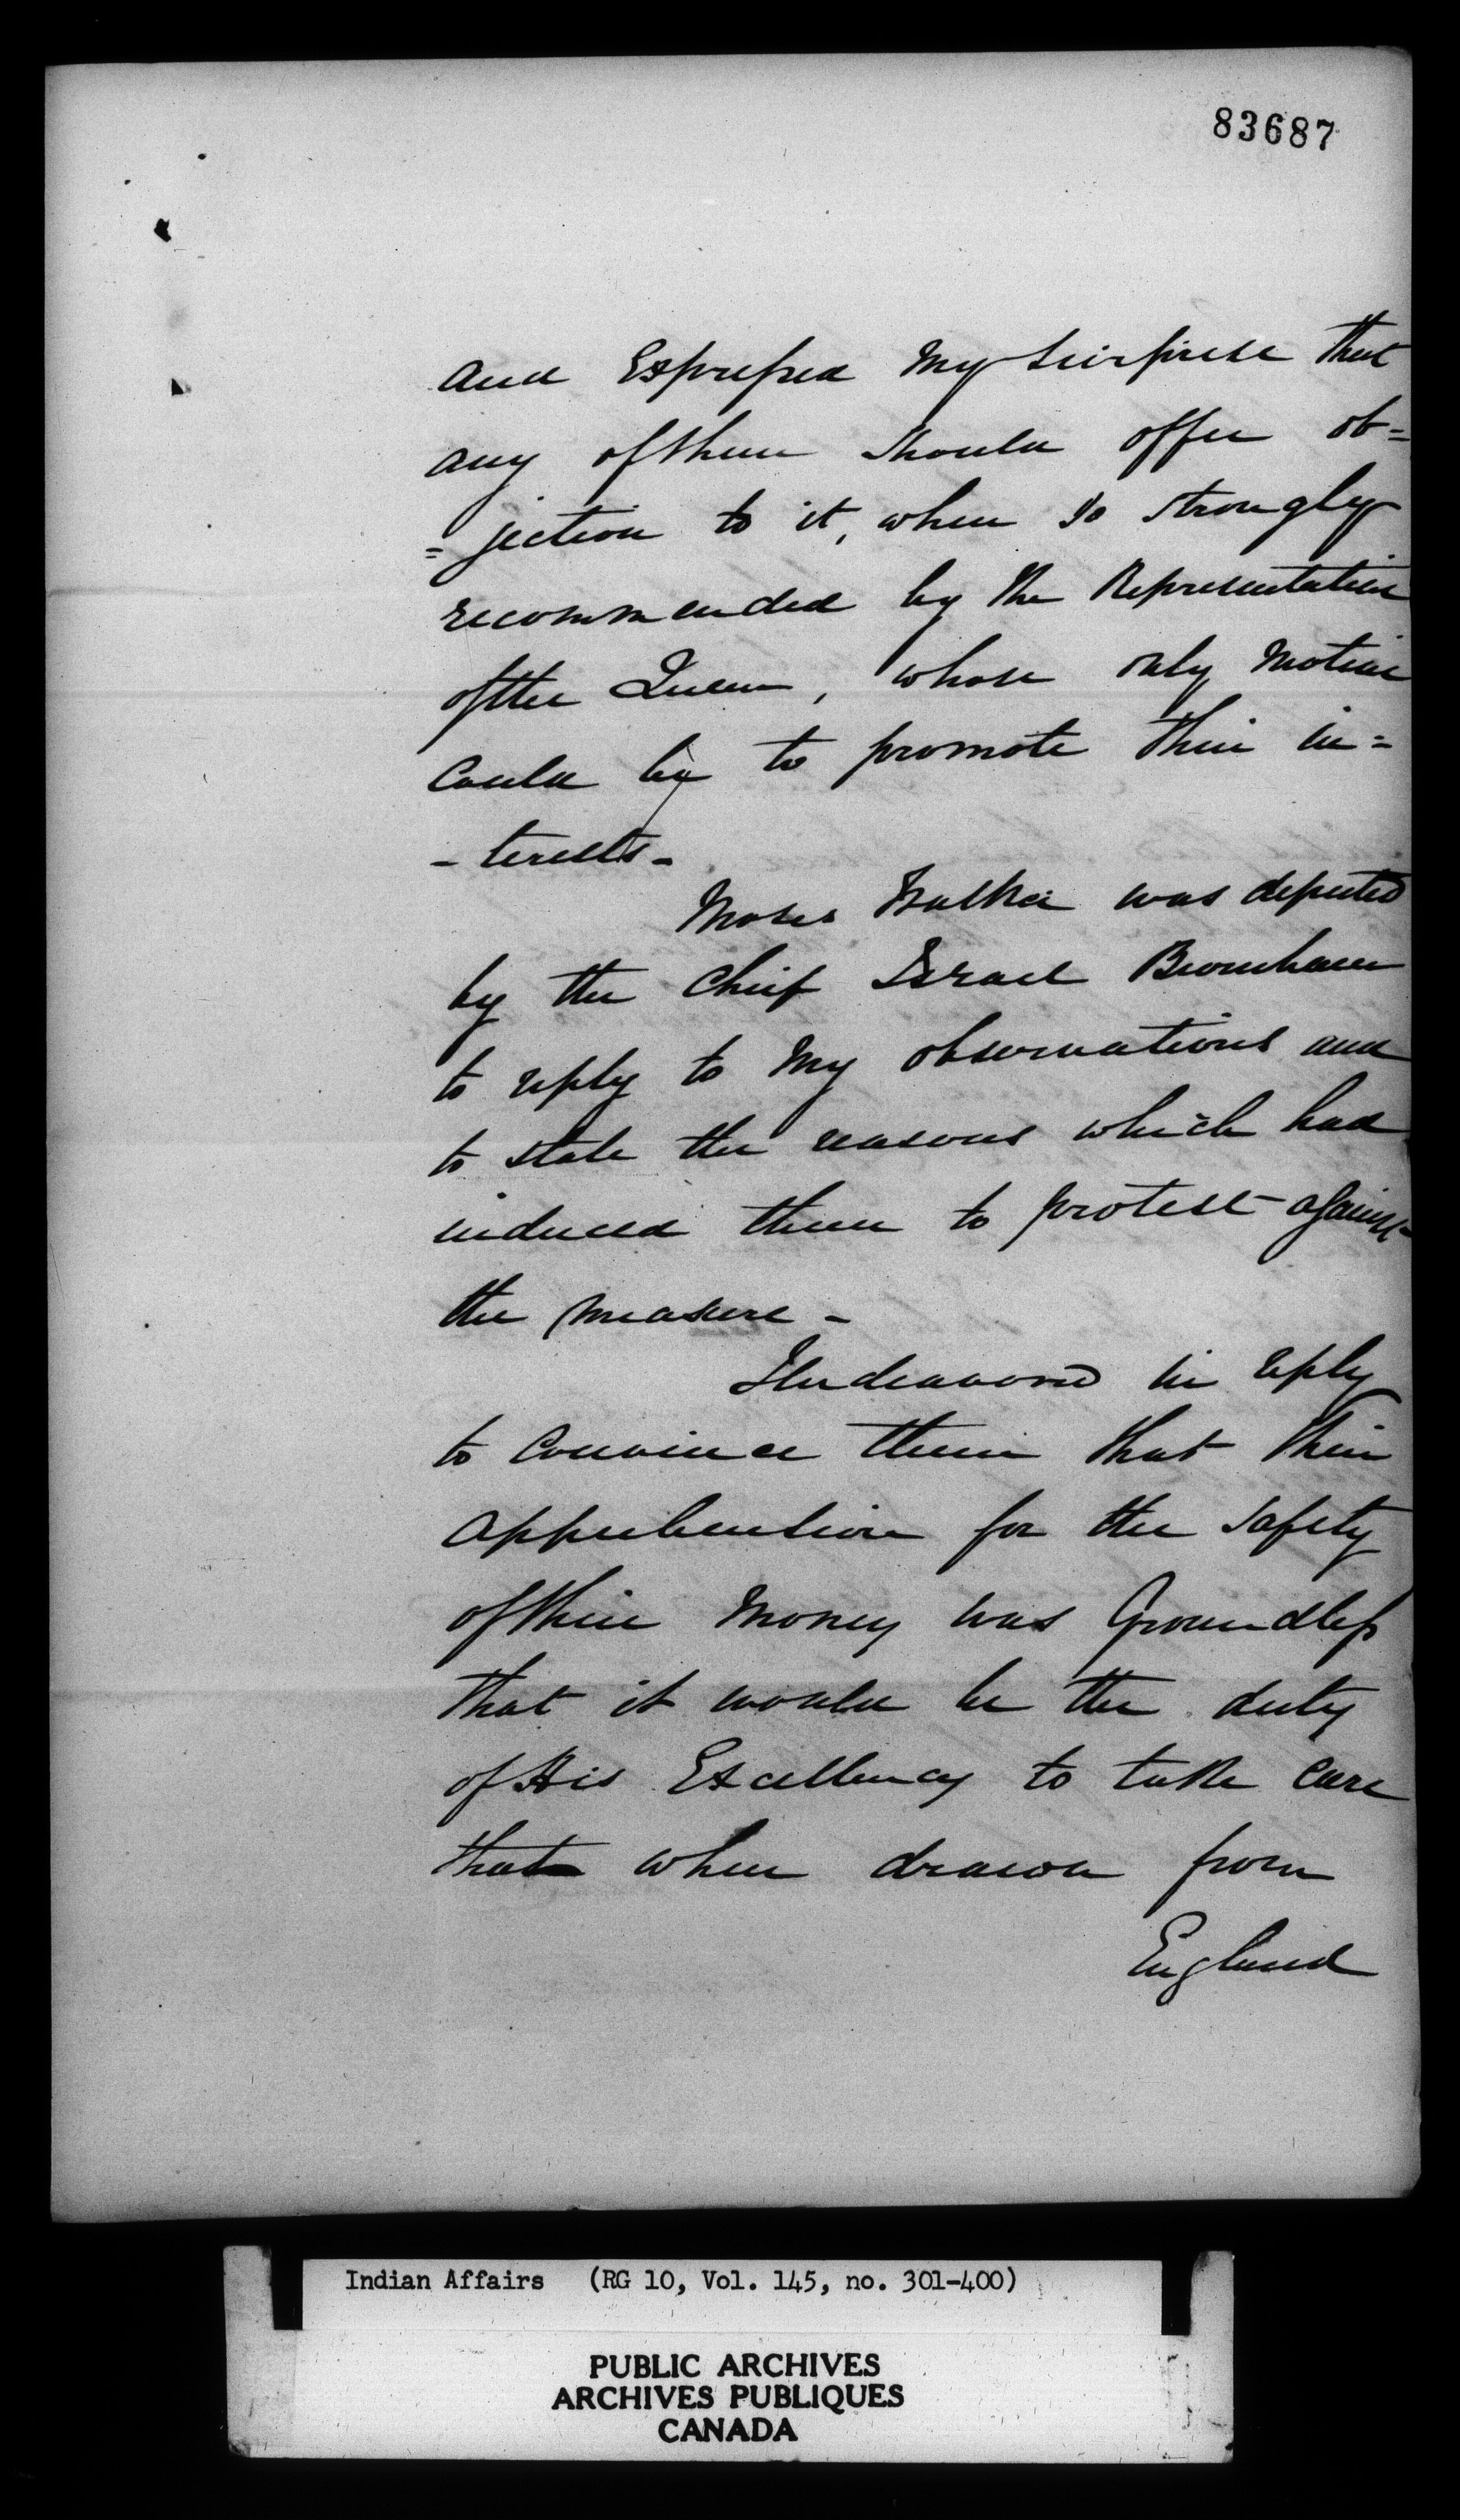 83687
and Expressed my surprise that
any of them should offer ob=
=jection to it, when so strongly
recommended by the Representative
of the Queen, whose only motive
could be to promote their in=
-terests-
Moses Walker was deputed
by the Chief Israel
to reply to my observations and
to state the reasons which had
induced them to protest against
the measure -
I endeavored in reply
to convince them that their
apprehension for the safety
of their money was Groundless
that it would be the duty
of His Excellency to take care
that when drawn from
England
Indian Affairs (RG 10, Vol. 145, no. 301-400)
PUBLIC ARCHIVES
ARCHIVES PUBLIQUES
CANADA